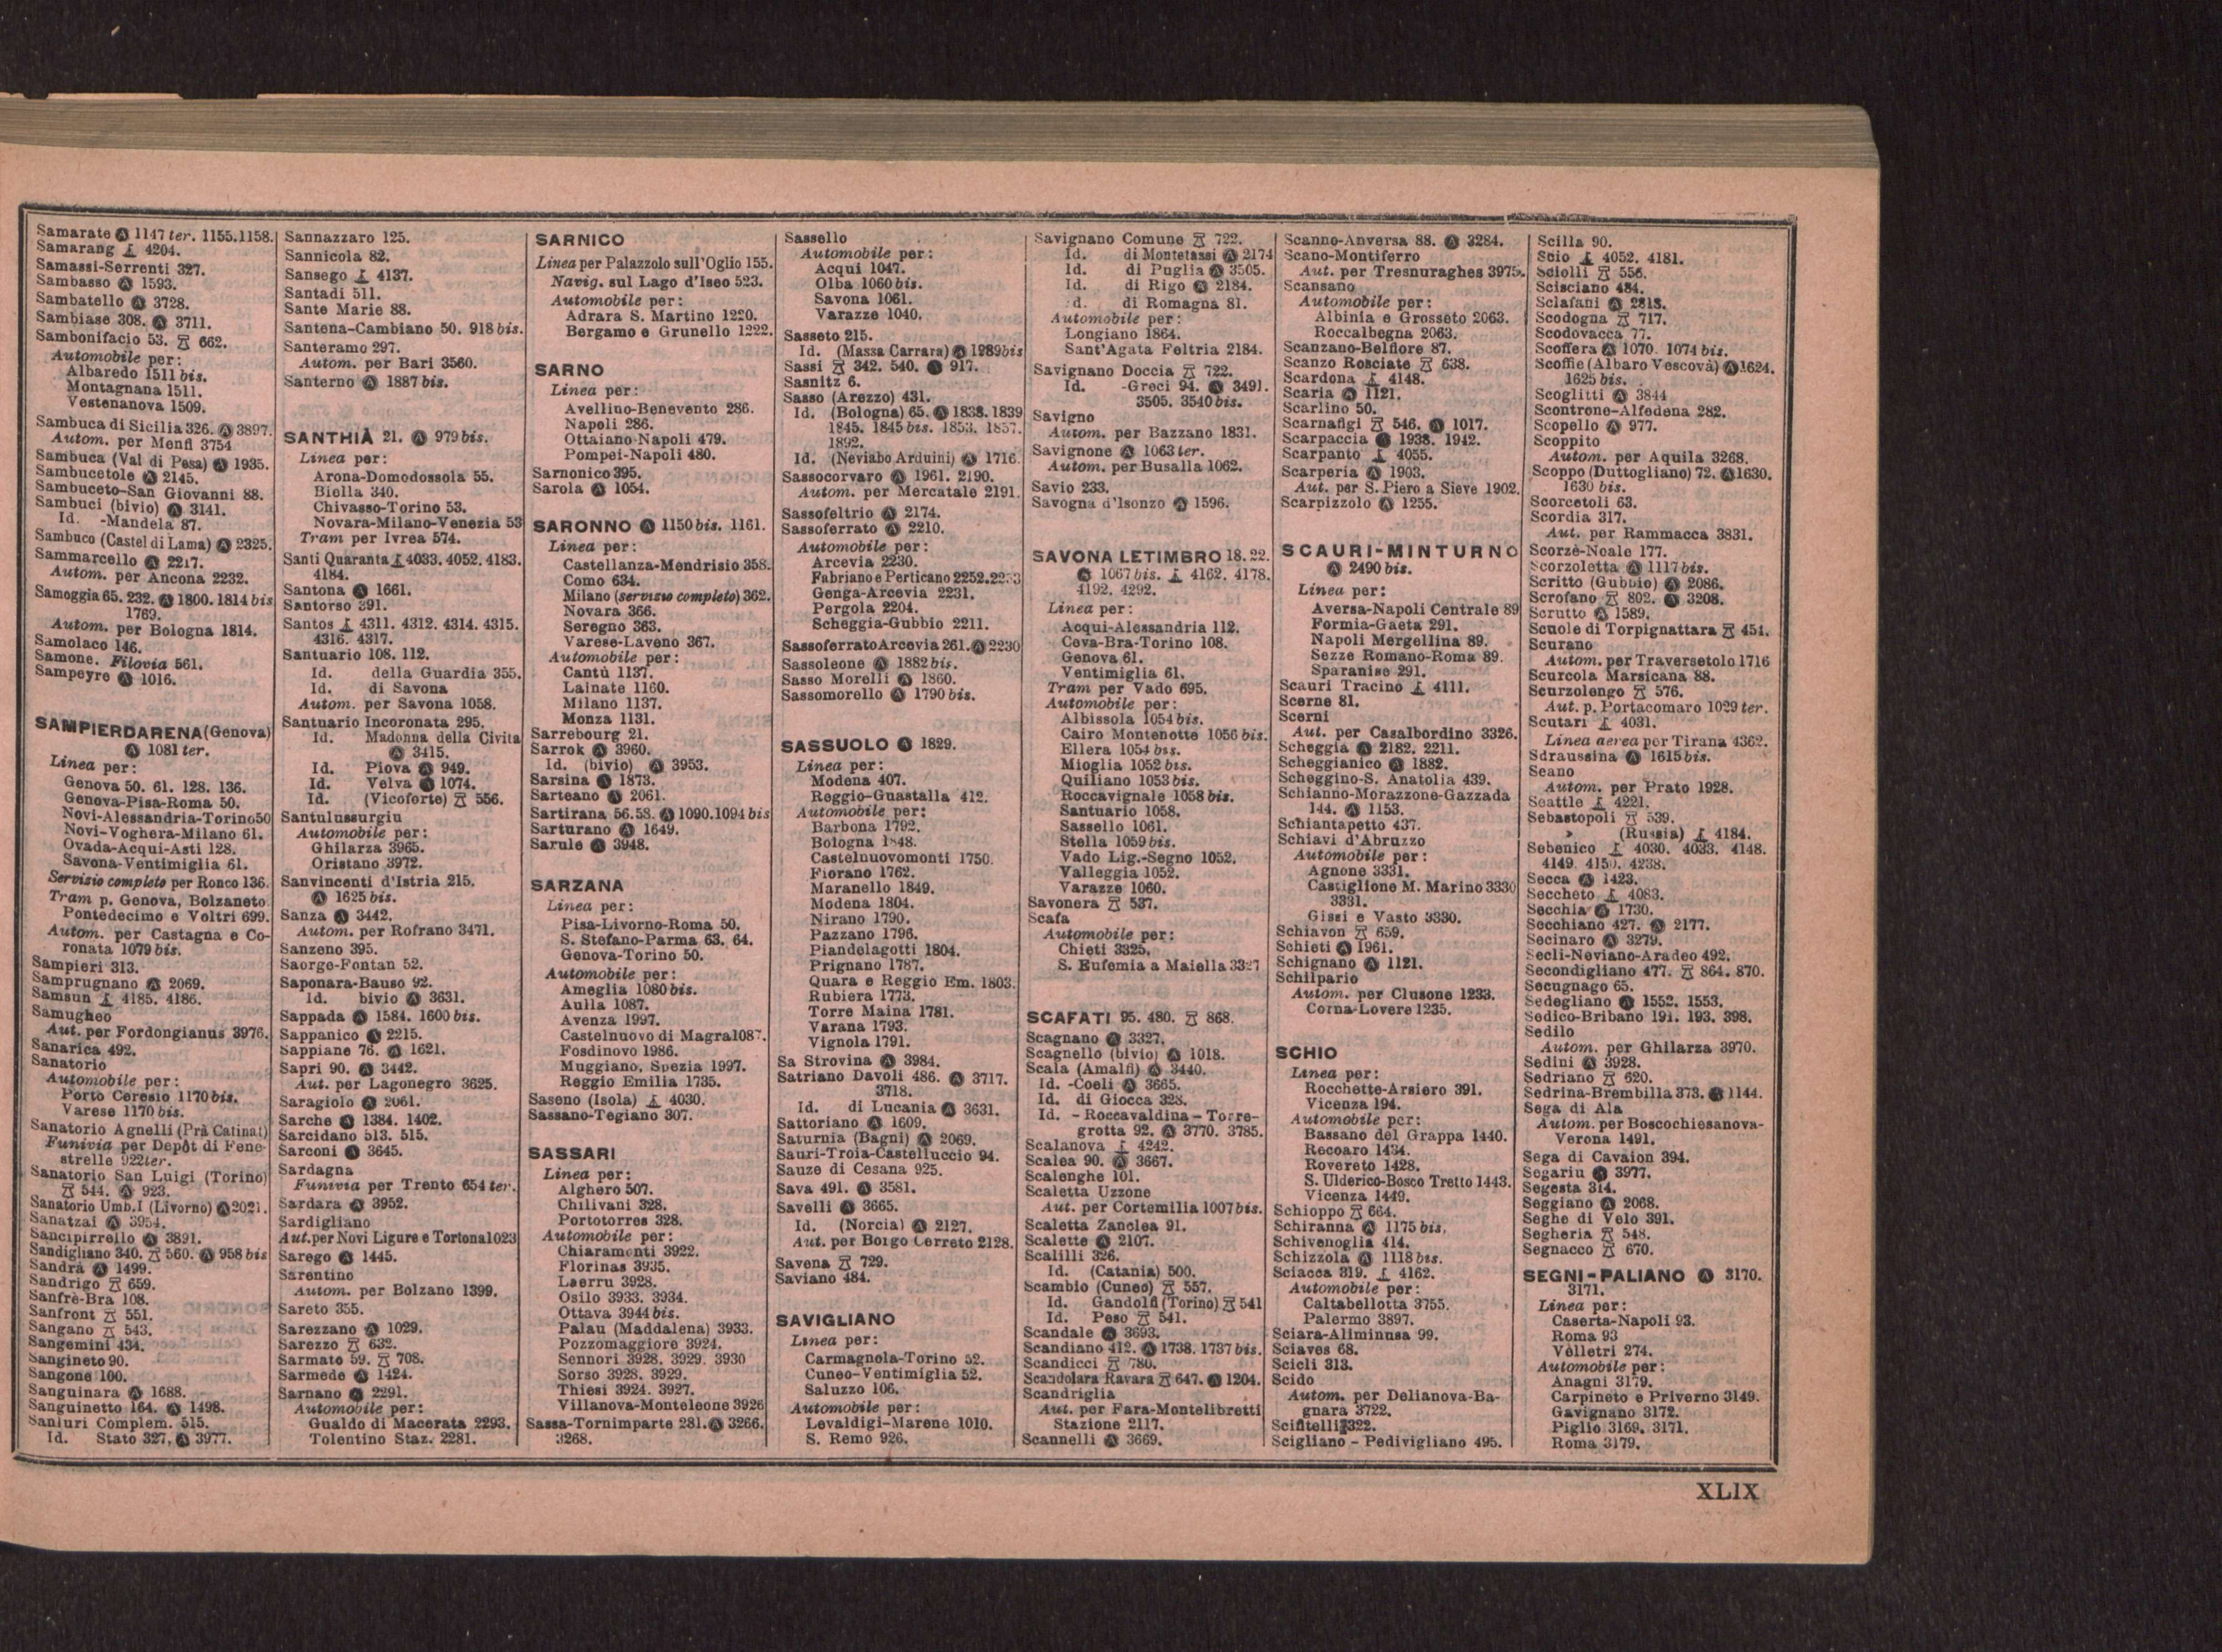 Samarate Ⓐ 1147 ter. 1155.1158.
Samarang 4204.
Samassi-Serrenti 327.
Sambasso Ⓐ 1593.
Sambatello Ⓐ 3728.
Sambiase 308. Ⓐ 3711.
Sambonifacio 53. 662.
Automobile per:
Albaredo 1511 bis.
Montagnana 1511.
Vestenanova 1509.
Sambuca di Sicilia 326. Ⓐ 3897.
Autom. per Menfi 3754
Sambuca (Val di Pesa) Ⓐ 1935.
Sambucetole Ⓐ 2145.
Sambuceto-San Giovanni 88.
Sambuci (bivio) Ⓐ 3141.
Id. -Mandela 87.
Sambuco (Castel di Lama) Ⓐ 2325.
Sammarcello Ⓐ 2217.
Autom. per Ancona 2232.
Samoggia 65. 232. Ⓐ 1800. 1814 bis
1763.
Autom. per Bologna 1814.
Samolaco 146.
Samone. Filovia 561.
Sampeyre Ⓐ 1016.
SAMPIERDARENA (Genova)
Ⓐ 1081 ter.
Linea per:
Genova 50. 61. 128. 136.
Genova-Pisa-Roma 50.
Novi-Alessandria-Torino 50
Novi-Voghera-Milano 61.
Ovada-Acqui-Asti 128.
Savona-Ventimiglia 61.
Servizio completo per Ronco 136.
Tram p. Genova, Bolzaneto
Pontedecimo e Voltri 699.
Autom. per Castagna e Co-
ronata 1079 bis.
Sampieri 313.
Samprugnano Ⓐ 2069.
Samsun 4185. 4186.
Samugheo
Aut. per Fordongianus 3976.
Sanarica 492.
Sanatorio
Automobile per:
Porto Ceresio 1170 bis.
Varese 1170 bis.
Sanatorio Agnelli (Prà Catinat)
Funivia per Depôt di Fene-
strelle 922ter.
Sanatorio San Luigi (Torino)
544. Ⓐ 923.
Sanatorio Umb.I (Livorno) Ⓐ 2021.
Sanatzai Ⓐ 3954.
Sancipirrello Ⓐ 3891.
Sandigliano 340. 560. Ⓐ 958 bis
Sandrà Ⓐ 1499.
Sandrigo 659.
Sanfrè-Bra 108.
Sanfront 551.
Sangano 543.
Sangemini 434.
Sangineto 90.
Sangone 100.
Sanguinara Ⓐ 1688.
Sanguinetto 164. Ⓐ 1498.
Sanluri Complem. 515.
Id. Stato 327. Ⓐ 3977.
Sannazzaro 125.
Sannicola 82.
Sansego 4137.
Santadi 511.
Sante Marie 88.
Santena-Cambiano 50. 918 bis.
Santeramo 297.
Autom. per Bari 3560.
Santerno Ⓐ 1887 bis.
SANTHIÀ 21. Ⓐ 979 bis.
Linea per:
Arona-Domodossola 55.
Biella 340.
Chivasso-Torino 53.
Novara-Milano-Venezia 53
Tram per Ivrea 574.
Santi Quaranta 4033. 4052. 4183.
4184.
Santona Ⓐ 1661.
Santorso 391.
Santos 4311. 4312. 4314. 4315.
4316. 4317.
Santuario 108. 112.
Id. della Guardia 355.
Id. di Savona
Autom. per Savona 1058.
Santuario Incoronata 295.
Id. Madonna della Civita
Ⓐ 3415.
Id. Piova Ⓐ 949.
Id. Velva Ⓐ 1074.
Id. (Vicoforte) 556.
Santulussurgiu
Automobile per:
Ghilarza 3965.
Oristano 3972.
Sanvincenti d'Istria 215.
Ⓐ 1625 bis.
Sanza Ⓐ 3442.
Autom. per Rofrano 3471.
Sanzeno 395.
Saorge-Fontan 52.
Saponara-Bauso 92.
Id. bivio Ⓐ 3631.
Sappada Ⓐ 1584. 1600 bis.
Sappanico Ⓐ 2215.
Sappiane 76. Ⓐ 1621.
Sapri 90. Ⓐ 3442.
Aut. per Lagonegro 3625.
Saragiolo Ⓐ 2061.
Sarche Ⓐ 1384. 1402.
Sarcidano 513. 515.
Sarconi Ⓐ 3645.
Sardagna
Funivia per Trento 654 ter.
Sardara Ⓐ 3952.
Sardigliano
Aut. per Novi Ligure e Tortona 1023
Sarego Ⓐ 1445.
Sarentino
Autom. per Bolzano 1399.
Sareto 355.
Sarezzano Ⓐ 1029.
Sarezzo 632.
Sarmato 59. 708.
Sarmede Ⓐ 1424.
Sarnano Ⓐ 2291.
Automobile per:
Gualdo di Macerata 2293.
Tolentino Staz. 2281.
SARNICO
Linea per Palazzolo sull'Oglio 155.
Navig. sul Lago d'Iseo 523.
Automobile per:
Adrara S. Martino 1220.
Bergamo e Grunello 1222.
SARNO
Linea per:
Avellino-Benevento 286.
Napoli 286.
Ottaiano Napoli 479.
Pompei-Napoli 480.
Sarnonico 395.
Sarola Ⓐ 1054.
SARONNO Ⓐ 1150 bis. 1161.
Linea per:
Castellanza-Mendrisio 358.
Como 634.
Milano (servizio completo) 362.
Novara 366.
Seregno 363.
Varese-Laveno 367.
Automobile per:
Cantù 1137.
Lainate 1160.
Milano 1137.
Monza 1131.
Sarrebourg 21.
Sarrok Ⓐ 3960.
Id. (bivio) Ⓐ 3953.
Sarsina Ⓐ 1873.
Sarteano Ⓐ 2061.
Sartirana 56.58. Ⓐ 1090.1094 bis
Sarturano Ⓐ 1649.
Sarule Ⓐ 3948.
SARZANA
Linea per:
Pisa-Livorno-Roma 50.
S. Stefano-Parma 63. 64.
Genova-Torino 50.
Automobile per:
Ameglia 1080 bis.
Aulla 1087.
Avenza 1997.
Castelnuovo di Magra 1087.
Fosdinovo 1986.
Muggiano, Spezia 1997.
Reggio Emilia 1735.
Saseno (Isola) 4030.
Sassano-Tegiano 307.
SASSARI
Linea per:
Alghero 507.
Chilivani 328.
Portotorres 328.
Automobile per:
Chiaramonti 3922.
Florinas 3935.
Laerru 3928.
Osilo 3933. 3934.
Ottava 3944 bis.
Palau (Maddalena) 3933.
Pozzomaggiore 3924.
Sennori 3928. 3929. 3930
Sorso 3928. 3929.
Thiesi 3924. 3927.
Villanova-Monteleone 3926
Sassa-Tornimparte 281. Ⓐ 3266.
3268.
Sassello
Automobile per:
Acqui 1047.
Olba 1060 bis.
Savona 1061.
Varazze 1040.
Sasseto 215.
Id. (Massa Carrara) Ⓐ 1989 bis
Sassi 342. 540. Ⓐ 917.
Sasnitz 6.
Sasso (Arezzo) 431.
Id. (Bologna) 65. Ⓐ 1838. 1839
1845. 1845 bis. 1853. 1857.
1892.
Id. (Neviano Arduini) Ⓐ 1716.
Sassocorvaro Ⓐ 1961. 2190.
Autom. per Mercatale 2191.
Sassofeltrio Ⓐ 2174.
Sassoferrato Ⓐ 2210.
Automobile per:
Arcevia 2230.
Fabriano e Perticano 2252.
Genga-Arcevia 2231.
Pergola 2204.
Scheggia-Gubbio 2211.
Sassoferrato Arcevia 261. Ⓐ 2230
Sassoleone Ⓐ 1882 bis.
Sasso Morelli Ⓐ 1860.
Sassomorello Ⓐ 1790 bis.
SASSUOLO Ⓐ 1829.
Linea per:
Modena 407.
Reggio-Guastalla 412.
Automobile per:
Barbona 1792.
Bologna 1848.
Castelnuovomonti 1750.
Fiorano 1762.
Maranello 1849.
Modena 1804.
Nirano 1790.
Pazzano 1796.
Piandelagotti 1804.
Prignano 1787.
Quara e Reggio Em. 1803.
Rubiera 1773.
Torre Maina 1781.
Varana 1793.
Vignola 1791.
Sa Strovina Ⓐ 3984.
Satriano Davoli 486. Ⓐ 3717.
3718.
Id. di Lucania Ⓐ 3631.
Sattoriano Ⓐ 1609.
Saturnia (Bagni) Ⓐ 2069.
Sauri-Troia-Castelluccio 94.
Sauze di Cesana 925.
Sava 491. Ⓐ 3581.
Savelli Ⓐ 3665.
Id. (Norcia) Ⓐ 2127.
Aut. per Borgo Cerreto 2128.
Savena 729.
Saviano 484.
SAVIGLIANO
Linea per:
Carmagnola-Torino 52.
Cuneo-Ventimiglia 52.
Saluzzo 106.
Automobile per:
Levaldigi-Marene 1010.
S. Remo 926.
Savignano Comune 722.
Id. di Montetassi Ⓐ 2174
Id. di Puglia Ⓐ 3505.
Id. di Rigo Ⓐ 2184.
d. di Romagna 81.
Automobile per:
Longiano 1864.
Sant'Agata Feltria 2184.
Savignano Doccia 722.
Id. -Greci 94. Ⓐ 3491.
3505. 3540 bis.
Savigno
Autom. per Bazzano 1831.
Savignone Ⓐ 1063 ter.
Autom. per Busalla 1062.
Savio 233.
Savogna d'Isonzo Ⓐ 1596.
SAVONA LETIMBRO 18. 22.
Ⓐ 1067 bis. 4162. 4178.
4192. 4292.
Linea per:
Acqui-Alessandria 112.
Ceva-Bra-Torino 108.
Genova 61.
Ventimiglia 61.
Tram per Vado 695.
Automobile per:
Albissola 1054 bis.
Cairo Montenotte 1056 bis.
Ellera 1054 bis.
Mioglia 1052 bis.
Quiliano 1053 bis.
Roccavignale 1058 bis.
Santuario 1058.
Sassello 1061.
Stella 1059 bis.
Vado Lig.-Segno 1052.
Valleggia 1052.
Varazze 1060.
Savonera 537.
Scafa
Automobile per:
Chieti 3325.
S. Eufemia a Maiella 3327
SCAFATI 95. 480. 868.
Scagnano Ⓐ 3327.
Scagnello (bivio) Ⓐ 1018.
Scala (Amalfi) Ⓐ 3440.
Id. -Coeli Ⓐ 3665.
Id. di Giocca 328.
Id. - Roccavaldina - Torre-
grotta 92. Ⓐ 3770. 3785.
Scalanova 4242.
Scalea 90. Ⓐ 3667.
Scalenghe 101.
Scaletta Uzzone
Aut. per Cortemilia 1007 bis.
Scaletta Zanclea 91.
Scalette Ⓐ 2107.
Scalilli 326.
Id. (Catania) 500.
Scambio (Cuneo) 557.
Id. Gandolfi (Torino) 541
Id. Peso 541.
Scandale Ⓐ 3693.
Scandiano 412. Ⓐ 1738. 1737 bis.
Scandicci 780.
Scandolara Ravara 647. Ⓐ 1204.
Scandriglia
Aut. per Fara-Montelibretti
Stazione 2117.
Scannelli Ⓐ 3669.
Scanno-Anversa 88. Ⓐ 3284.
Scano-Montiferro
Aut. per Tresnuraghes 3975.
Scansano
Automobile per:
Albinia e Grosseto 2063.
Roccalbegna 2063.
Scanzano-Belfiore 87.
Scanzo Rosciate 638.
Scardona 4148.
Scaria Ⓐ 1121.
Scarlino 50.
Scarnafigi 546. Ⓐ 1017.
Scarpaccia Ⓐ 1938. 1942.
Scarpanto 4055.
Scarperia Ⓐ 1903.
Aut. per S. Piero a Sieve 1902.
Scarpizzolo Ⓐ 1255.
SCAURI-MINTURNO
Ⓐ 2490 bis.
Linea per:
Aversa-Napoli Centrale 89
Formia-Gaeta 291.
Napoli Mergellina 89.
Sezze Romano-Roma 89.
Sparanise 291.
Scauri Tracino 4111.
Scerne 81.
Scerni
Aut. per Casalbordino 3326.
Scheggia Ⓐ 2182. 2211.
Scheggianico Ⓐ 1882.
Scheggino-S. Anatolia 439.
Schianno-Morazzone-Gazzada
144. Ⓐ 1153.
Schiantapetto 437.
Schiavi d'Abruzzo
Automobile per:
Agnone 3331.
Castiglione M. Marino 3330
3331.
Gissi e Vasto 3330.
Schiavon 659.
Schieti Ⓐ 1961.
Schignano Ⓐ 1121.
Schilpario
Autom. per Clusone 1233.
Corna-Lovere 1235.
SCHIO
Linea per:
Rocchette-Arsiero 391.
Vicenza 194.
Automobile per:
Bassano del Grappa 1440.
Recoaro 1434.
Rovereto 1428.
S. Ulderico-Bosco Tretto 1443.
Vicenza 1449.
Schioppo 664.
Schiranna Ⓐ 1175 bis.
Schivenoglia 414.
Schizzola Ⓐ 1118 bis.
Sciacca 319. 4162.
Automobile per:
Caltabellotta 3755.
Palermo 3897.
Sciara-Aliminusa 99.
Sciaves 68.
Scicli 313.
Scido
Autom. per Delianova-Ba-
gnara 3722.
Scifitelli 322.
Scigliano - Pedivigliano 495.
Scilla 90.
Scio 4052. 4181.
Sciolli 556.
Scisciano 484.
Sclafani Ⓐ 2818.
Scodogna 717.
Scodovacca 77.
Scoffera Ⓐ 1070. 1074 bis.
Scoffie (Albaro Vescovà) Ⓐ 1624.
1625 bis.
Scoglitti Ⓐ 3844
Scontrone-Alfedena 282.
Scopello Ⓐ 977.
Scoppito
Autom. per Aquila 3268.
Scoppo (Duttogliano) 72. Ⓐ 1630.
1630 bis.
Scorcetoli 63.
Scordia 317.
Aut. per Rammacca 3831.
Scorzè-Noale 177.
Scorzoletta Ⓐ 1117 bis.
Scritto (Gubbio) Ⓐ 2086.
Scrofano 802. Ⓐ 3208.
Scrutto Ⓐ 1589.
Scuole di Torpignattara 451.
Scurano
Autom. per Traversetolo 1716
Scurcola Marsicana 88.
Scurzolengo 576.
Aut. p. Portacomaro 1029 ter.
Scutari 4031.
Linea aerea per Tirana 4362.
Sdraussina Ⓐ 1615 bis.
Seano
Autom. per Prato 1928.
Seattle 4221.
Sebastopoli 539.
» (Russia) 4184.
Sebenico 4030. 4033. 4148.
4149. 4150. 4238.
Secca Ⓐ 1423.
Seccheto 4083.
Secchia Ⓐ 1730.
Secchiano 427. Ⓐ 2177.
Secinaro Ⓐ 3279.
Secli-Neviano-Aradeo 492.
Secondigliano 477. 864. 870.
Secugnago 65.
Sedegliano Ⓐ 1552. 1553.
Sedico-Bribano 191. 193. 398.
Sedilo
Autom. per Ghilarza 3970.
Sedini Ⓐ 3928.
Sedriano 620.
Sedrina-Brembilla 373. Ⓐ 1144.
Sega di Ala
Autom. per Boscochiesanova-
Verona 1491.
Sega di Cavaion 394.
Segariu Ⓐ 3977.
Segesta 314.
Seggiano Ⓐ 2068.
Seghe di Velo 391.
Segheria 548.
Segnacco 670.
SEGNI-PALIANO Ⓐ 3170.
3171.
Linea per:
Caserta-Napoli 93.
Roma 93
Velletri 274.
Automobile per:
Anagni 3179.
Carpineto e Priverno 3149.
Gavignano 3172.
Piglio 3169. 3171.
Roma 3179.
XLIX